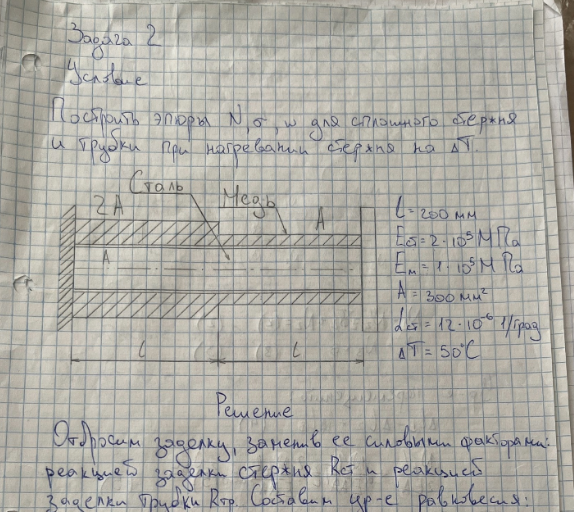 Задача 2
Условие
Построить эпюры N, σ, w для сплошного стержня
и трубки при нагревании стержня на ΔT.
Сталь
Медь
2A
A
A
l
l
l = 200 мм
Eст = 2·10⁵ МПа
Eм = 1·10⁵ МПа
A = 300 мм²
αст = 12·10⁻⁶ 1/град
ΔT = 50°C
Решение
Отбросим заделку, заменив ее силовыми факторами:
реакцией заделки стержня Rст и реакцией
заделки трубки Rтр. Составим ур-е равновесия: